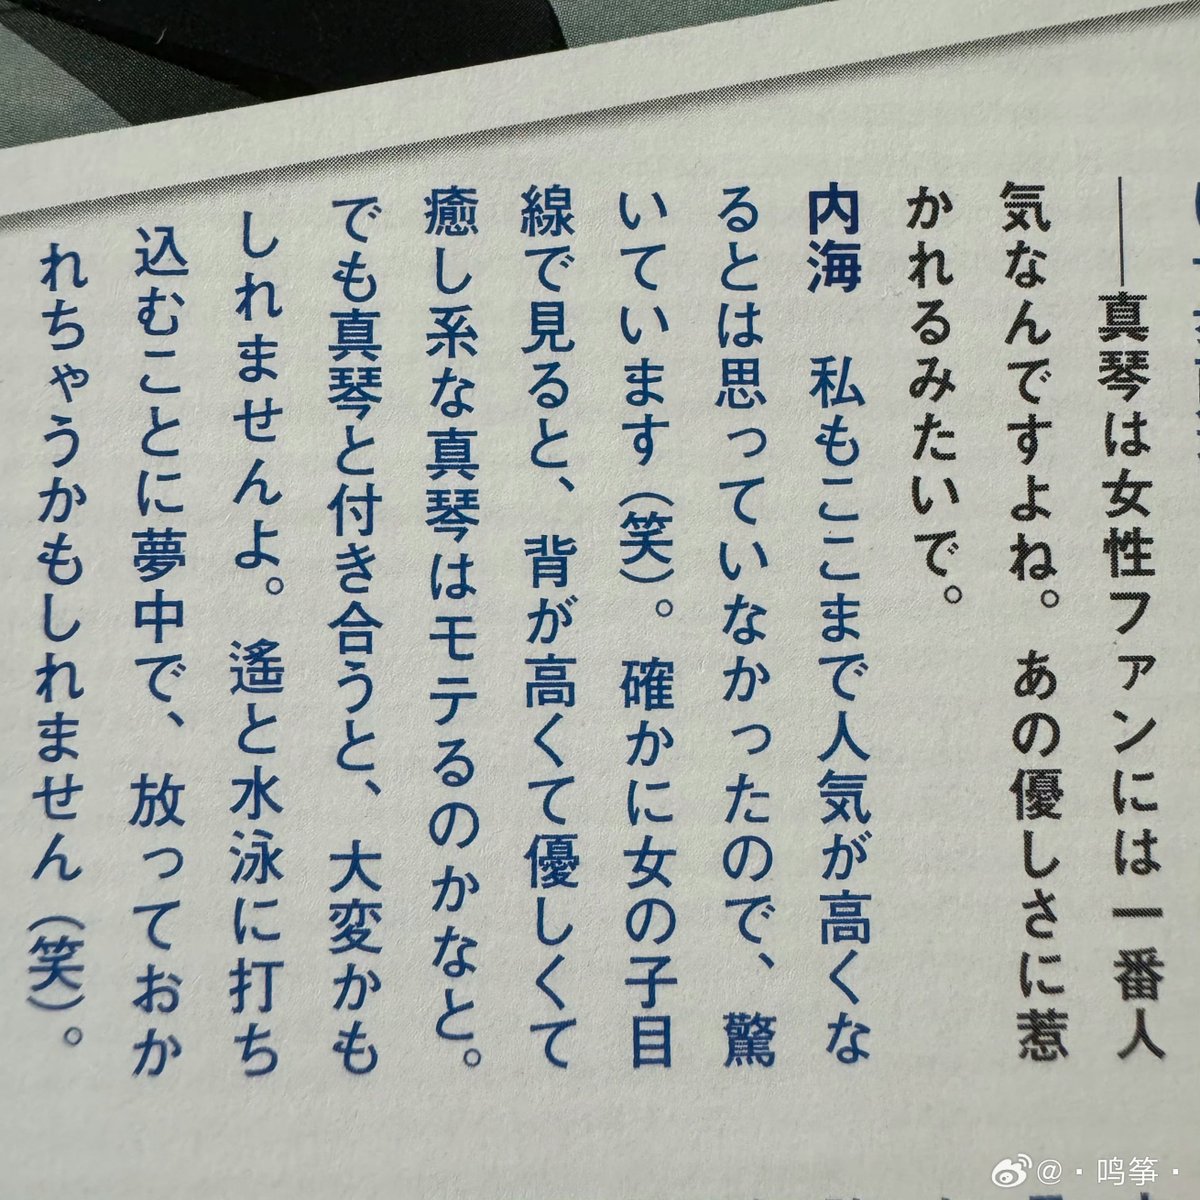 ――真琴は女性ファンには一番人
気なんですよね。あの優しさに惹
かれるみたいで。
内海　私もここまで人気が高くな
るとは思っていなかったので、驚
いています（笑）。確かに女の子目
線で見ると、背が高くて優しくて
癒し系な真琴はモテるのかなと。
でも真琴と付き合うと、大変かも
しれませんよ。遙と水泳に打ち
込むことに夢中で、放っておか
れちゃうかもしれません（笑）。
@·鸣筝·